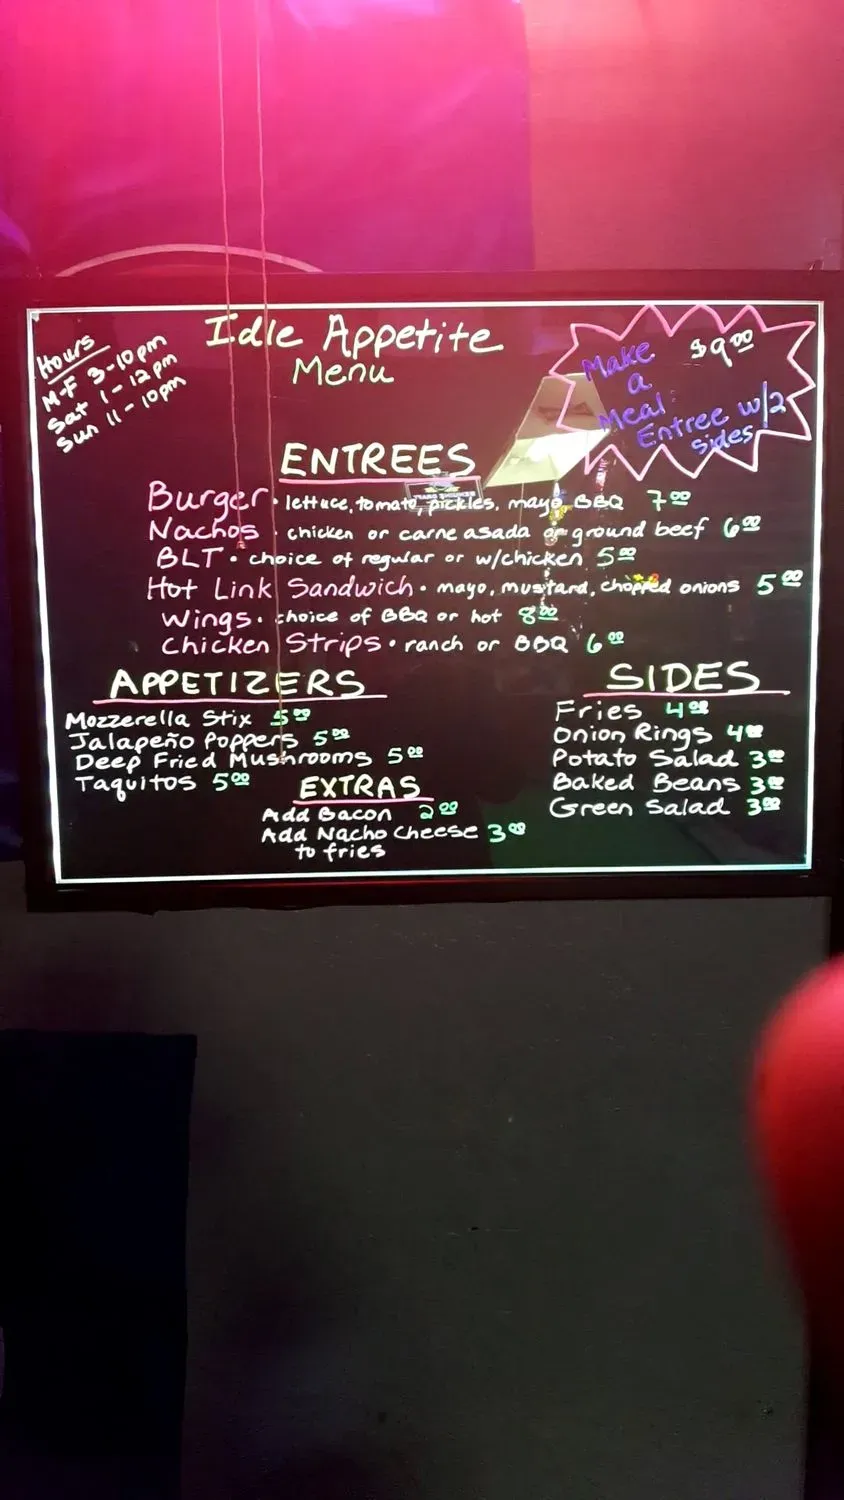 Hours
M-F 3-10pm
Sat 1-12pm
Sun 11-10pm
Idle Appetite
Menu
$9.00
Make
a
Meal:
Entree w/2
sides
ENTREES
Burger · lettuce, tomato, pickles, mayo BBQ 7.00
Nachos · chicken or carne asada or ground beef 6.00
BLT · choice of regular or w/chicken 5.00
Hot Link Sandwich · mayo, mustard, chopped onions 5.00
Wings · choice of BBQ or hot 8.00
Chicken Strips · ranch or BBQ 6.00
APPETIZERS
Mozzerella Stix 5.00
Jalapeño Poppers 5.00
Deep Fried Mushrooms 5.00
Taquitos 5.00
EXTRAS
Add Bacon 2.00
Add Nacho Cheese 3.00
to fries
SIDES
Fries 4.00
Onion Rings 4.00
Potato Salad 3.00
Baked Beans 3.00
Green Salad 3.00